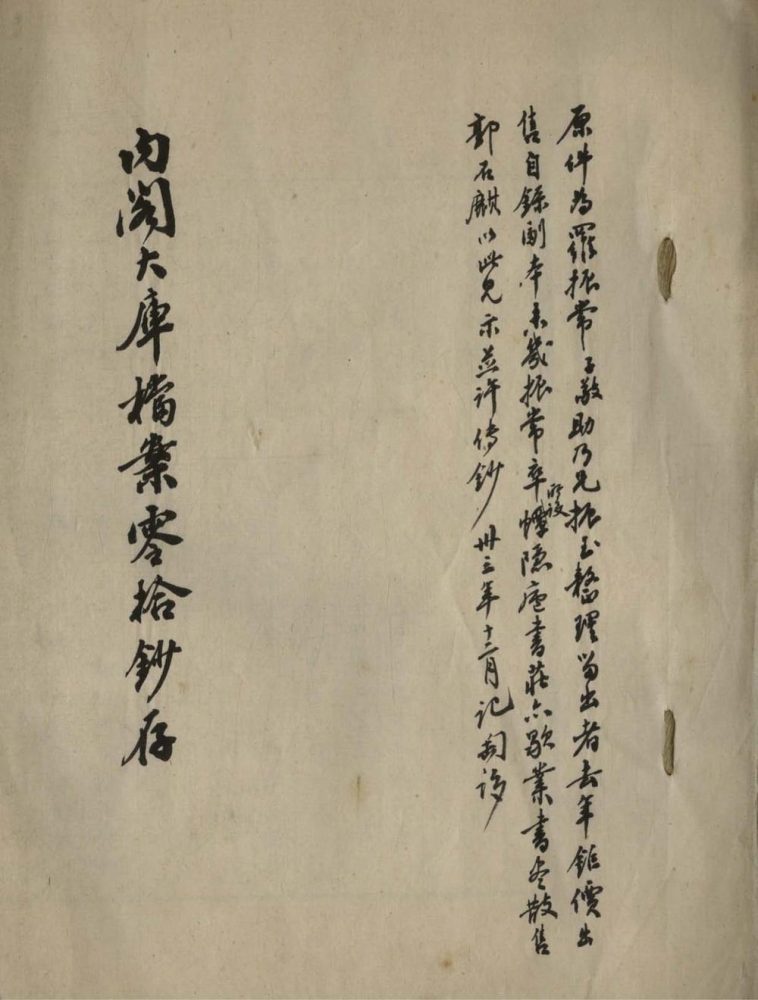 原件為羅振常子敬助乃兄振玉整理留出者去年鉅價出
售自錄副本未幾振常卒所設蟫隱廬書莊亦歇業書盡散售
郭石麒以此見示並許傳鈔卅三年十二月記
內閣大庫檔案零拾鈔存